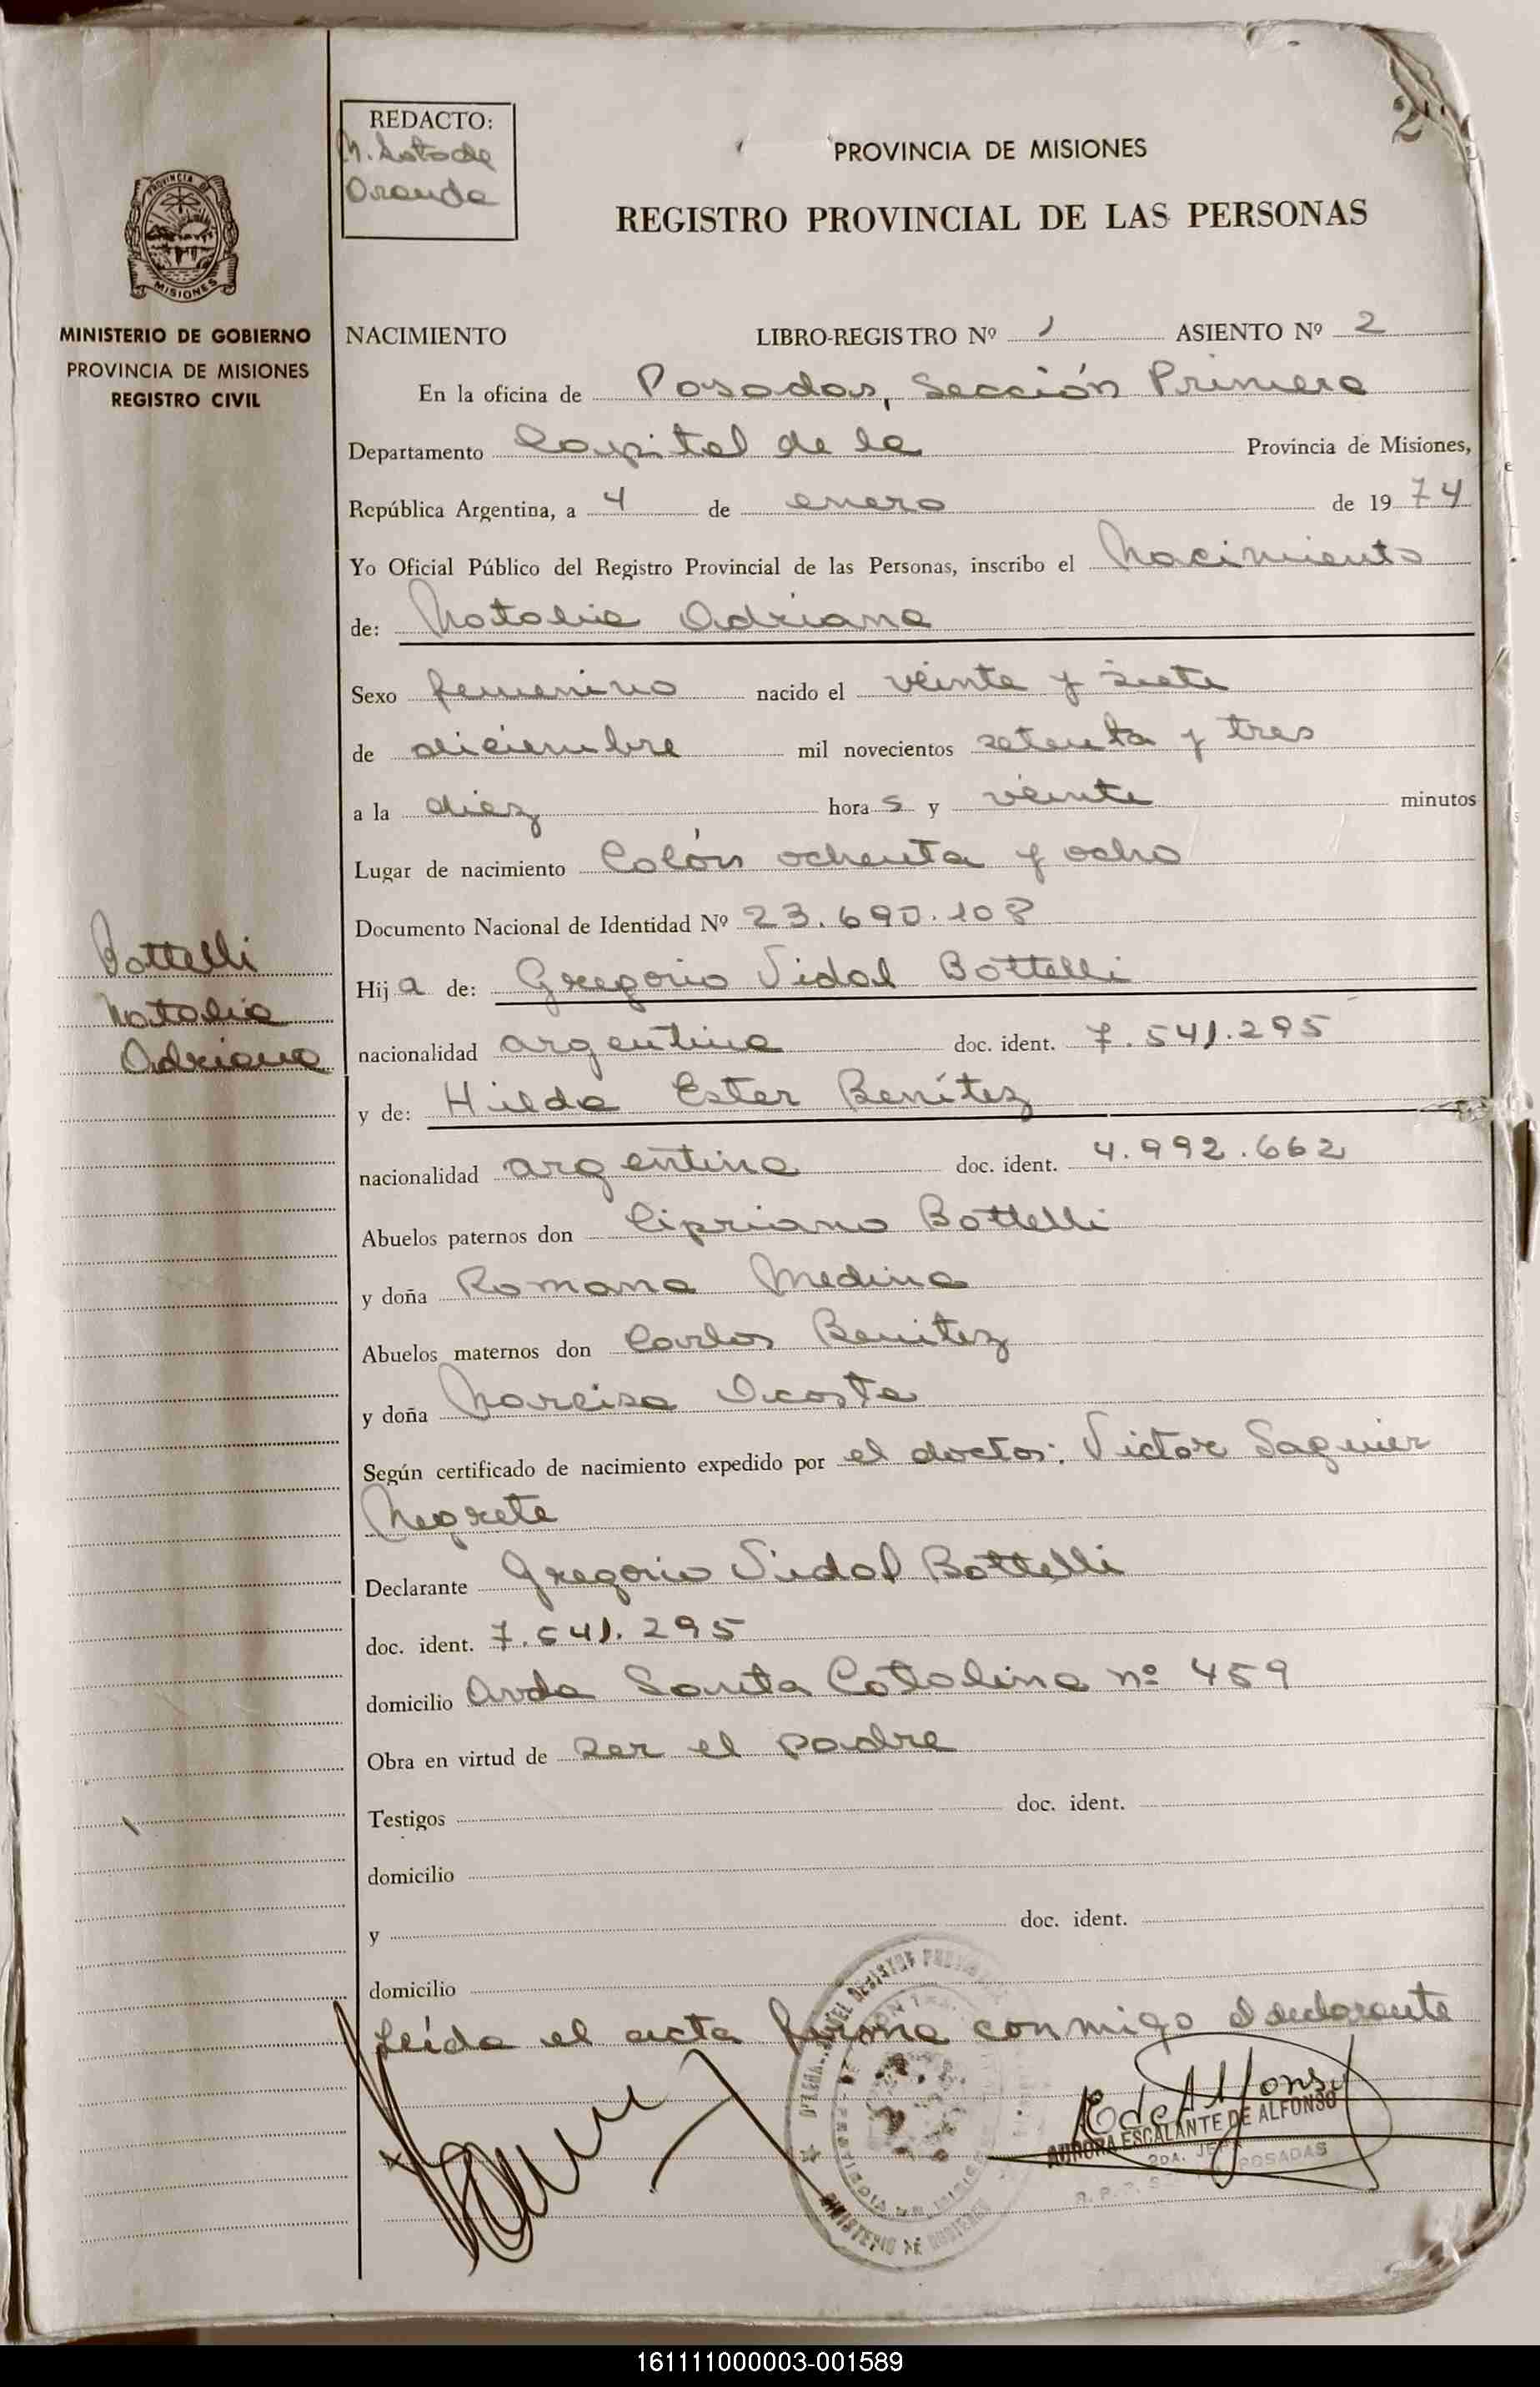 REDACTO:
M. Soto de
Oranda
2
PROVINCIA DE MISIONES
REGISTRO PROVINCIAL DE LAS PERSONAS
PROVINCIA DE
MISIONES
MINISTERIO DE GOBIERNO
PROVINCIA DE MISIONES
REGISTRO CIVIL
NACIMIENTO LIBRO-REGISTRO Nº 1 ASIENTO Nº 2
En la oficina de Posadas, Sección Primera
Departamento Capital de la Provincia de Misiones,
República Argentina, a 4 de enero de 1974
Yo Oficial Público del Registro Provincial de las Personas, inscribo el Nacimiento
de: Natalia Adriana
Sexo femenino nacido el veinte y siete
de diciembre mil novecientos setenta y tres
a la diez horas y veinte minutos
Lugar de nacimiento Colón ochenta y ocho
Documento Nacional de Identidad Nº 23.690.108
Bottelli
Natalia
Adriana
Hija de: Gregorio Vidal Bottelli
nacionalidad argentina doc. ident. 7.541.295
y de: Hilda Ester Benítez
nacionalidad argentina doc. ident. 4.992.662
Abuelos paternos don Cipriano Bottelli
y doña Romana Medina
Abuelos maternos don Carlos Benitez
y doña Narcisa Acosta
Según certificado de nacimiento expedido por el doctor: Victor Saguier
Negrete
Declarante Gregorio Vidal Bottelli
doc. ident. 7.541.295
domicilio Avda Santa Catalina nº 459
Obra en virtud de ser el padre
Testigos doc. ident.
domicilio
y doc. ident.
domicilio
Leída el acta firma conmigo el declarante
E de Alfonso
AURORA ESCALANTE DE ALFONSO
2DA. JEFA POSADAS
MINISTERIO DE GOBIERNO
161111000003-001589